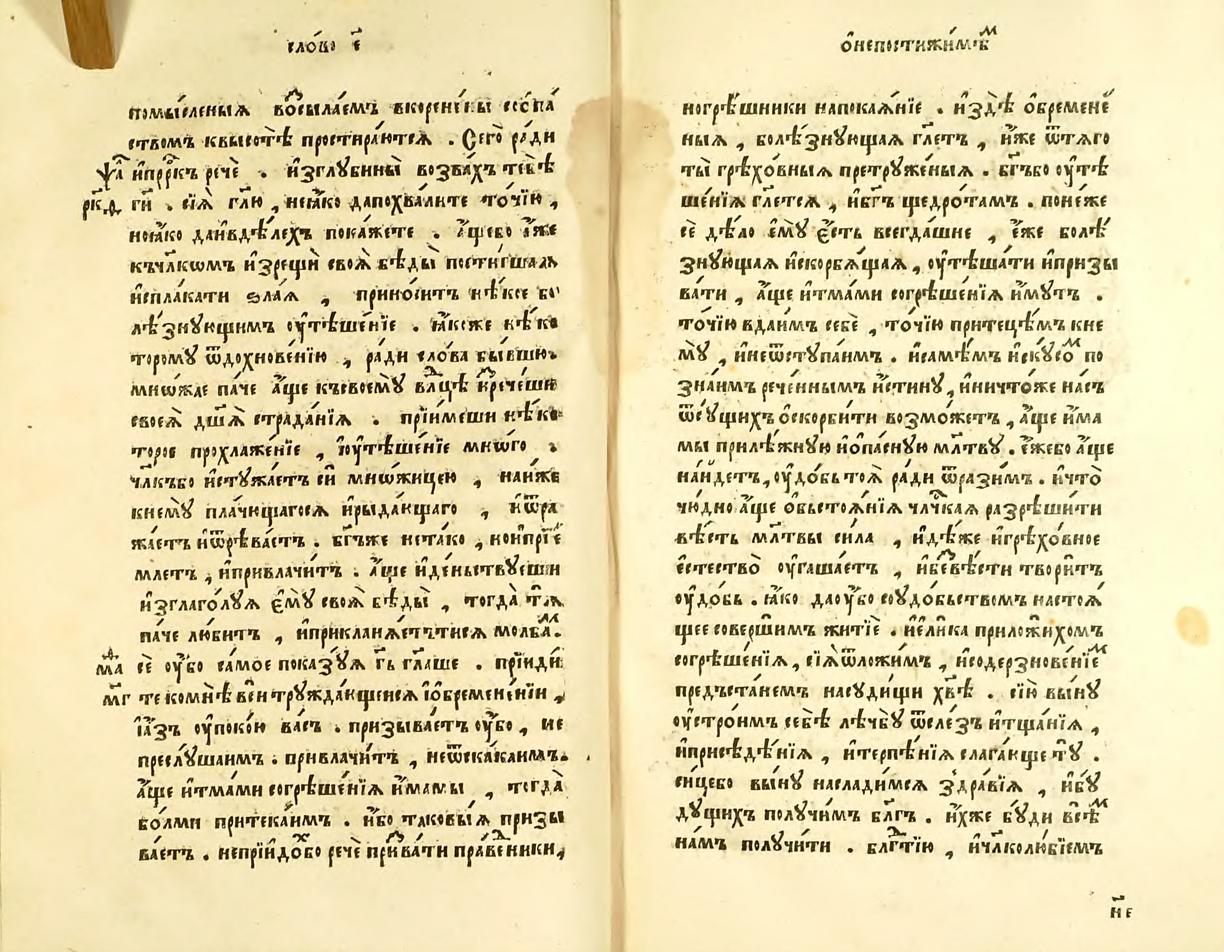 сло́во е҃
помы́сленыѧ восыла́емъ вкорене́ны
ствомъ квысотѣ̀ простира́ютсѧ . Сего̀ ра́ди
ѱа҃ и҆прⷪ҇ркъ речѐ . и҆зглꙋбины̀ возва́хъ тебѣ̀
рк҃ѳ гиⷭ҇ . сїѧ̀ гл҃ю , неꙗ҆́ко дапохва́лите то́чїю ,
ноꙗ҆́ко даи҆вдѣ́лехъ пока́жете . а҆́щебо ꙗ҆́же
къчл҃кѡмъ и҆зрещѝ своѧ̀ бѣды̀
и҆спла́кати ѕла́ѧ , прино́ситъ нѣ́кое бо
лѣ́знꙋющимъ ᲂу҆тѣше́нїе . ꙗ҆́коже нѣ́ко
торомꙋ ѿдохнове́нїю , ра́ди сло́ва бы́вшю
мно́жде па́че а҆́ще къ своемꙋ̀ влⷣцѣ и҆зрече́ши
своеѧ̀ дш҃а̀ страда́нїѧ . прїи́меши нѣ́ко
торое прохлаже́нїе , и҆ᲂу҆тѣше́нїе мно́го .
чл҃къбо и҆стꙋжа́етъ сѝ мно́жицею , наи҆́же
кнемꙋ̀ пла́чющагосѧ и҆рыда́ющаго , и҆ѿра
жа́етъ и҆ѿрѣва́етъ . бг҃ъже нета́ко , нои҆прїе́
млетъ , и҆привлачи́тъ . а҆́ще и҆де́ньствꙋеши
и҆зглаго́лꙋѧ є҆мꙋ̀ своѧ̀ бѣды̀ , тогда̀ тѧ̀
па́че лю́битъ , и҆приклани́ѧетътисѧ молбаⷨ .
маⷴ҇ сѐ ᲂу҆̀бо са́мое показꙋѧ гь҃ гл҃аше . прїиди
мг҃ те комнѣ̀ всѝ трꙋжда́ющеисѧ и҆ѡ҆бремене́нїи ,
и҆а҆́зъ ᲂу҆поко́ю ва́съ . призыва́етъ ᲂу҆́бо , не
преслꙋ́шаимъ . привлачи́тъ , неѿска́каимъ .
а҆́ще и҆тма́ми согрѣше́нїѧ и҆́мамы , тогда̀
бо́лми притека́имъ . и҆́бо таковы́ѧ призы
ва́етъ . непрїидо́хбо речѐ призва́ти пра́веⷣники ,
ѡ҆непостижи́мѣⷨ
ногрѣ́шники напокаѧ́нїе . и҆здѣ̀ ѡ҆бремене́
ныѧ , болѣ́знꙋющаѧ гл҃етъ , и҆́же ѿтѧго
ты̀ грѣхо́вныѧ претрꙋже́ныѧ . бг҃ъбо ᲂу҆тѣ
ше́нїѧ гл҃етсѧ , и҆бг҃ъ щедро́тамъ . поне́же
сѐ дѣ́ло є҆мꙋ̀ є҆́сть всегда́шне , є҆́же болѣ́
знꙋющаѧ и҆скорбѧ́щаѧ , ᲂу҆тѣша́ти и҆призы
ва́ти , а҆́ще и҆тма́ми согрѣше́нїѧ и҆́мꙋтъ .
то́чїю вдаи́мъ себѐ , то́чїю притеце́мъ кне
мꙋ̀ , и҆неѿстꙋпа́имъ . и҆самѣ́мъ и҆скꙋсоⷨ по
зна́имъ рече́ннымъ и҆́стинꙋ , и҆ничто́же на́съ
ѿсꙋ́щихъ ѡ҆скорби́ти возмо́жетъ , а҆́ще и҆́ма
мы прилѣ́жнꙋю и҆ѻ҆па́снꙋю мл҃твꙋ . є҆́жебо а҆́ще
на́идетъ , ᲂу҆до́бь тоѧ̀ ра́ди ѿрази́мъ . и҆что̀
чю́дно а҆́ще ѡ҆бьстоѧ́нїѧ чл҃чкаѧ разрѣши́ти
вѣ́сть мл҃твы си́ла , и҆дѣ́же и҆грѣхо́вное
є҆стество̀ ᲂу҆гаша́етъ , и҆безвѣ́сти твори́тъ
ᲂу҆до́бь . ꙗ҆́ко даᲂу҆́бо соᲂу҆до́бьствомъ настоѧ́
щее соверши́мъ житїѐ . и҆є҆ли́ка приложи́хомъ
согрѣше́нїѧ , сїѧ̀ѿложи́мъ , и҆содерзнове́нїеⷨ
предъста́немъ насꙋди́щи хв҃ѣ . сїю̀ вы́нꙋ
ᲂу҆стро́имъ себѣ̀ лѣ́чбꙋ ѿсле́зъ и҆тща́нїѧ ,
и҆присѣдѣ́нїѧ , и҆терпѣ́нїѧ слага́юще тꙋ̀ .
си́цебо вы́нꙋ наслади́мсѧ здра́вїѧ , и҆бꙋ́
дꙋщихъ полꙋ́чимъ бл҃гъ . и҆́хже бꙋ́ди всѣ́ⷨ
на́мъ полꙋчи́ти . блгⷣтїю , и҆чл҃колю́бїемъ
н҃е